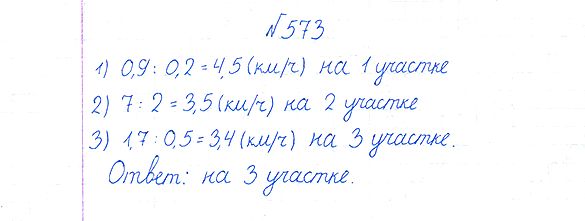 №573
1) 0,9 : 0,2 = 4,5 (км/ч) на 1 участке
2) 7 : 2 = 3,5 (км/ч) на 2 участке
3) 1,7 : 0,5 = 3,4 (км/ч) на 3 участке.
Ответ: на 3 участке.